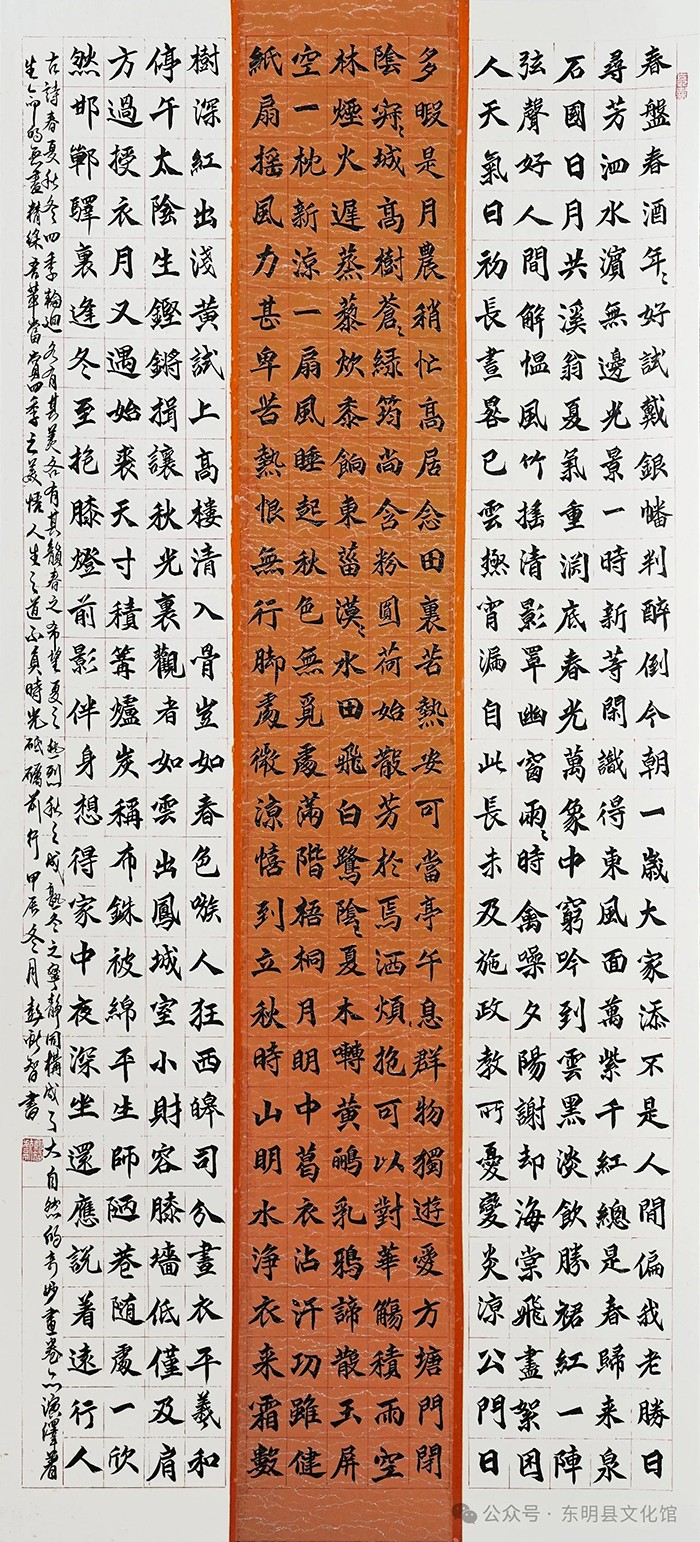 春盤春酒年〻好試戴銀幡判醉倒今朝一歲大家添不是人間偏我老勝日
尋芳泗水濱無邊光景一時新等閑識得東風面萬紫千紅總是春歸来泉
石國日月共溪翁夏氣重淵底春光萬象中窮吟到雲黑淡飲勝裙紅一陣
弦聲好人間解愠風竹摇清影罩幽窗雨〻時禽噪夕陽謝却海棠飛盡絮困
人天氣日初長晝晷已雲極宵漏自此長未及施政教所憂變炎凉公門日
多暇是月農稍忙高居念田裏苦熱安可當亭午息群物獨遊愛方塘門閉
陰寂〻城高樹蒼〻綠筠尚含粉圓荷始散芳於焉洒煩抱可以對華觴積雨空
林煙火遲蒸藜炊黍餉東菑漠〻水田飛白鷺陰〻夏木囀黄鸝乳鴉啼散玉屏
空一枕新凉一扇風睡起秋色無覓處滿階梧桐月明中葛衣沾汗功雖健
紙扇摇風力甚卑苦熱恨無行脚處微凉憘到立秋時山明水净衣来霜數
樹深紅出淺黄試上高樓清入骨豈如春色嗾人狂西皞司分晝衣平羲和
停午太陰生鏗鏘揖讓秋光裏觀者如雲出鳳城室小財容膝墻低僅及肩
方過授衣月又遇始裘天寸積篝爐炭稱布銖被綿平生師陋巷随處一欣
然邯鄲驛裏逢冬至抱膝燈前影伴身想得家中夜深坐還應説着遠行人
古詩春夏秋冬四季輪迴各有其美各有其韻春之希望夏之熱烈秋之成熟冬之寧静同構成了大自然的奇妙畫卷亦演繹着
生命的無盡精綵吾輩當賞四季之美悟人生之道不負時光砥礪前行甲辰冬月彭智書
公众号·东明县文化馆